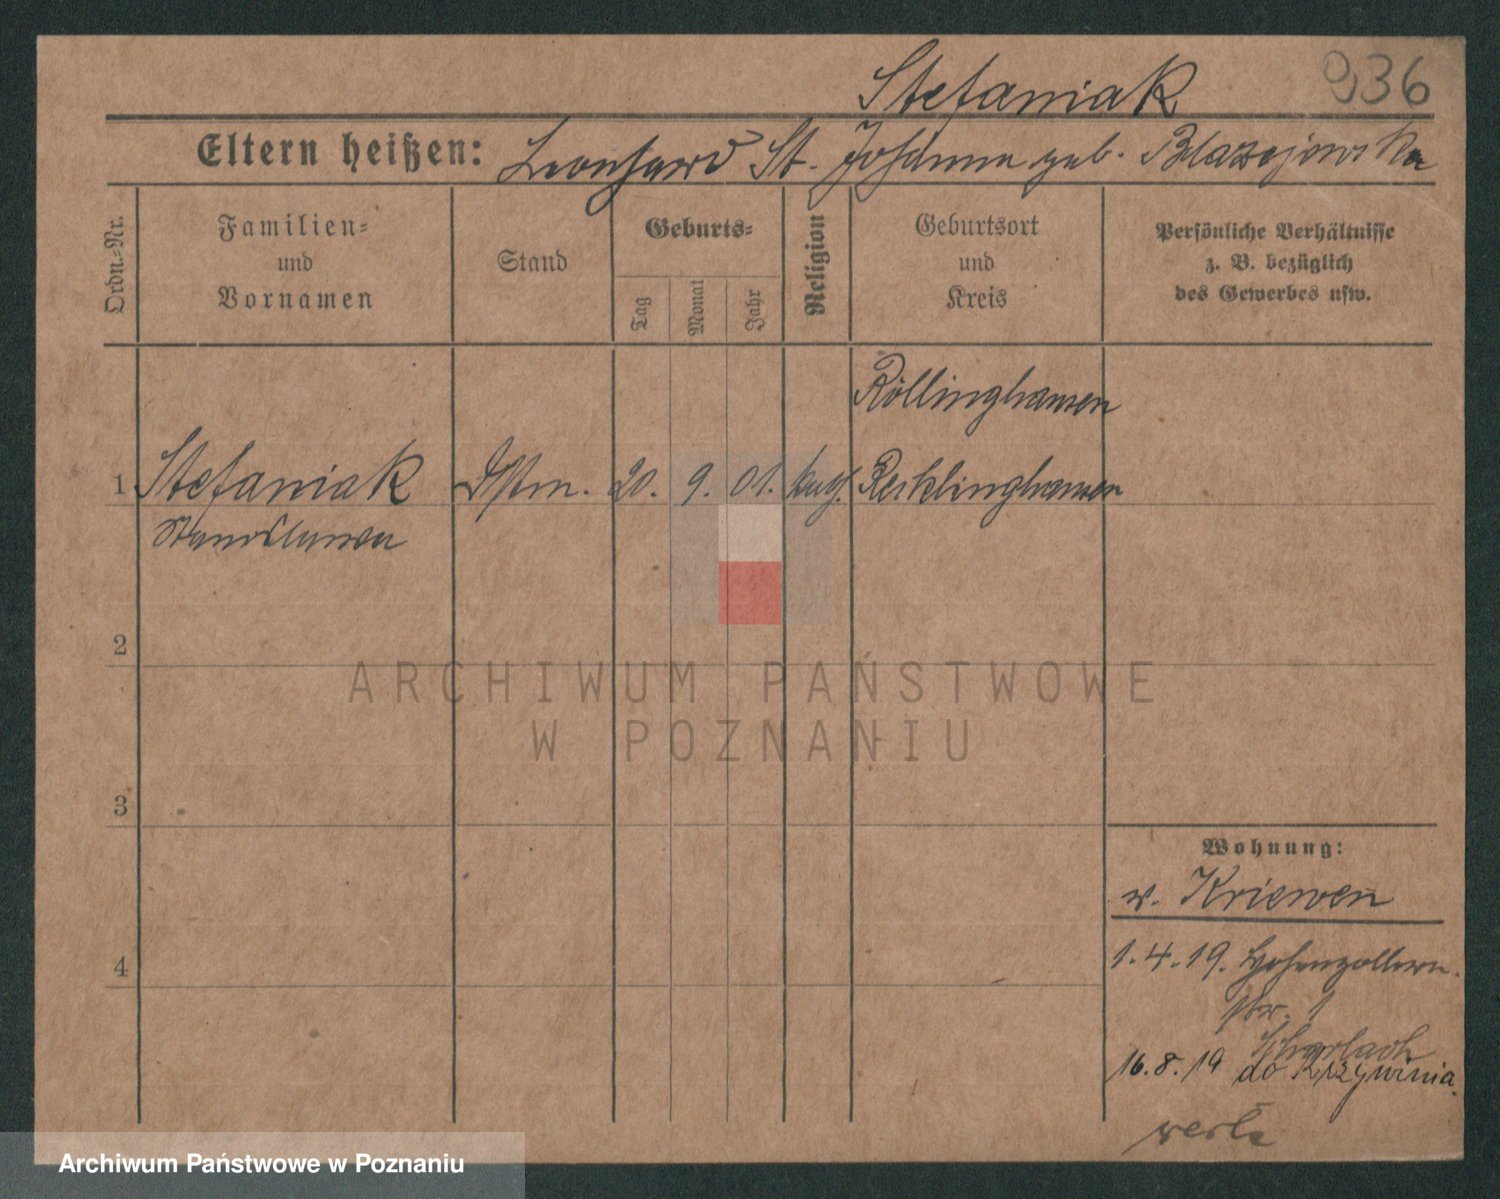 Stefaniak 936
Eltern heißen: Leonhard St. Johanna geb. Blazejowska
Ordn.=Nr.
Familien=
und
Vornamen
Stand
Geburts=
Tag
Monat
Jahr
Religion
Geburtsort
und
Kreis
Persönliche Verhältnisse
z. B. bezüglich
des Gewerbes usw.
Röllinghausen
1 Stefaniak Dstm. 20. 9. 01. kath. Recklinghausen
Stanislawa
2
3
4
Wohnung:
v. Kriewen
1.4.19. Hohenzollern
str. 1
Scharlach
16.8.19 do Krzywinia
ARCHIWUM PAŃSTWOWE
W POZNANIU
Archiwum Państwowe w Poznaniu